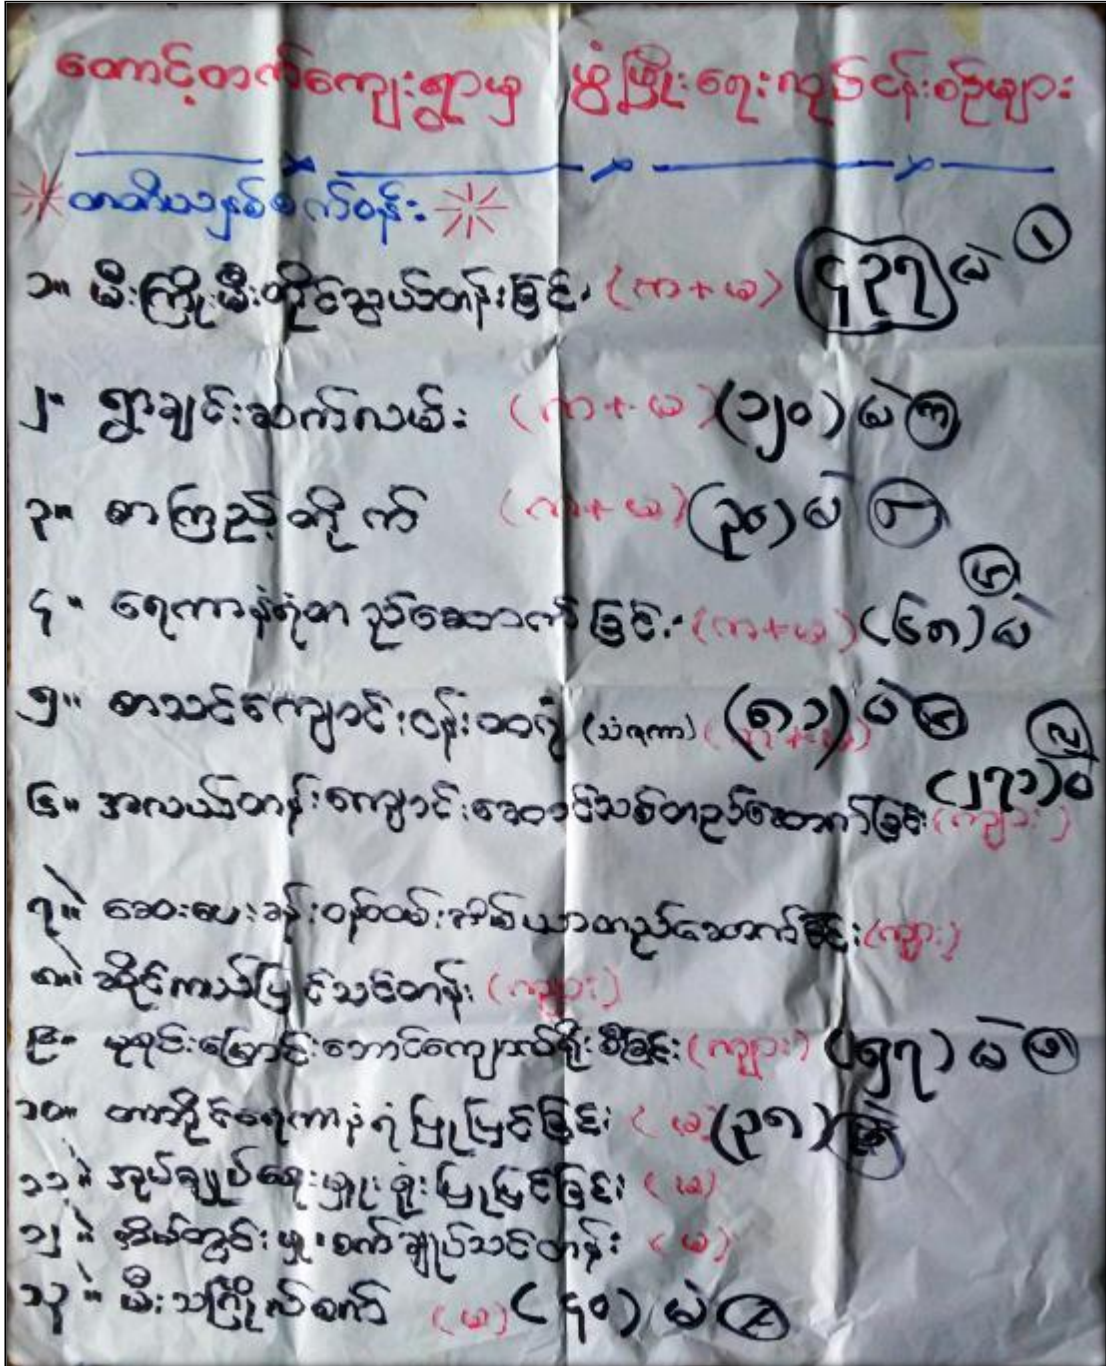 တောင့်တက်ကျေးရွာမှ ဖွံ့ဖြိုးရေးလုပ်ငန်းစဉ်များ
တတိယနှစ်စက်ဝန်း
၁။ မီးကြိုးမီးတိုင်သွယ်တန်းခြင်း (ကာ+မ) (၄၃၇) မဲ ၁
၂။ ရွာချင်းဆက်လမ်း (ကာ+မ) (၁၂၀) မဲ ၃
၃။ စာကြည့်တိုက် (ကာ+မ) (၃၀) မဲ
၄။ ရေကာနံရံတည်ဆောက်ခြင်း (ကာ+မ) (၆၈) မဲ
၅။ စာသင်ကျောင်းဝန်းထရံ (သံဇကာ) (ကာ+မ) (၈၁) မဲ
၆။ အလယ်တန်းကျောင်းဆောင်သစ်တည်ဆောက်ခြင်း (ကျား) (၂၇၁) မဲ ၂
၇။ ဆေးပေးခန်းဝန်ထမ်းအိမ်ယာတည်ဆောက်ခြင်း (ကျား)
၈။ ဆိုင်ကယ်ပြင်သင်တန်း (ကျား)
၉။ မူရင်းမြောင်းဘောင်ကျောက်စီခြင်း (ကျား) (၅၇) မဲ
၁၀။ တာရိုးရေကာနံရံပြုပြင်ခြင်း (မ) (၃၈)
၁၁။ အုပ်ချုပ်ရေးမှူးရုံးပြုပြင်ခြင်း (မ)
၁၂။ အိမ်တွင်းမှု စက်ချုပ်သင်တန်း (မ)
၁၃။ မီးသကြိုလ်စက် (မ) (၄၀) မဲ